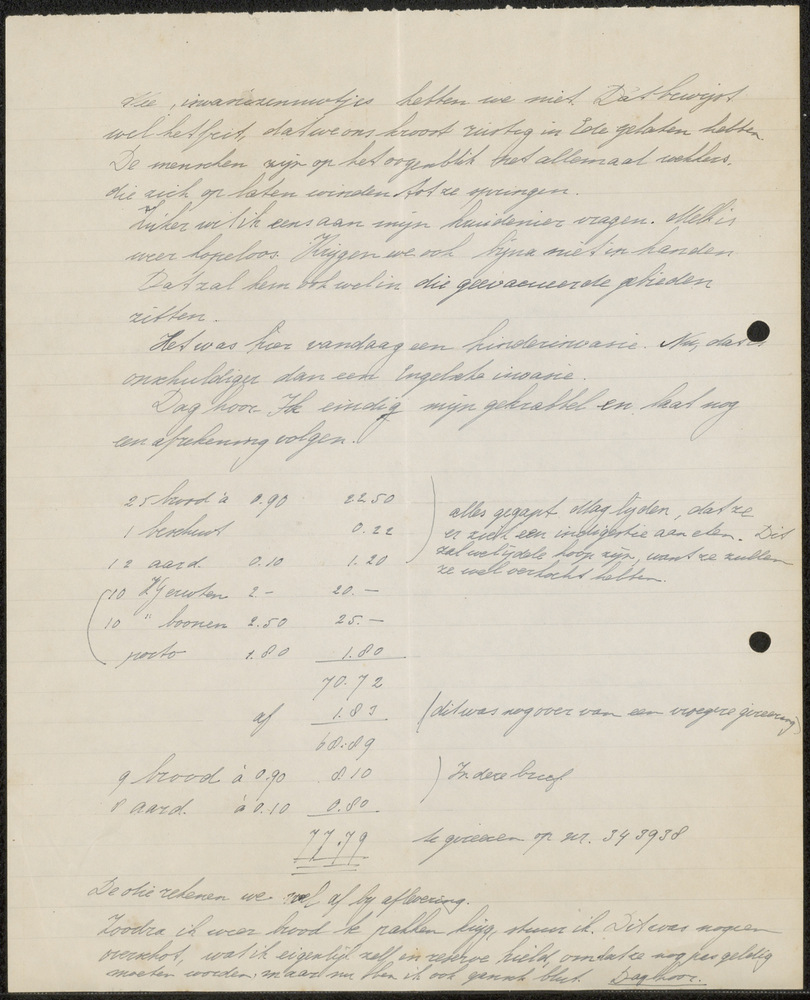 Nee, invasiezenuwtjes hebben we niet. Dat bewijst
wel het feit, dat we ons kroost rustig in Ede gelaten hebben.
De menschen zijn op het oogenblik net allemaal wekkers,
die zich op laten winden tot ze springen.
Suiker wil ik eens aan mijn kruidenier vragen. Melk is
weer hopeloos. Krijgen we ook bijna niet in handen
Dat zal hem ook wel in die geevacueerde gebieden
zitten.
Het was hier vandaag een kinderinvasie. Nu, dat is
onschuldiger dan een Engelsche invasie.
Dag hoor. Ik eindig mijn gekrabbel en laat nog
een afrekening volgen.
25 brood à 0.90 22.50
1 beschuit 0.22
12 aard. 0.10 1.20
alles gegapt. Mag lijden, dat ze
er zich een indigestie aan eten. Dit
zal wel ijdele hoop zijn, want ze zullen
ze wel verkocht hebben.
10 Kg erwten 2.- 20.-
10 " boonen 2.50 25.-
porto 1.80 1.80
70.72
af 1.83 (dit was nog over van een vroegere gireering)
68.89
9 brood à 0.90 8.10 ) In deze brief
8 aard. à 0.10 0.80
77.79 te gireeren op nr. 343938
De olie rekenen we wel af bij aflevering.
Zoodra ik weer brood te pakken krijg, stuur ik. Dit was nog een
overschot, wat ik eigenlijk zelf in reserve hield, omdat ze nog pas geldig
moeten worden; maar nu ben ik ook ... blut. Dag hoor.